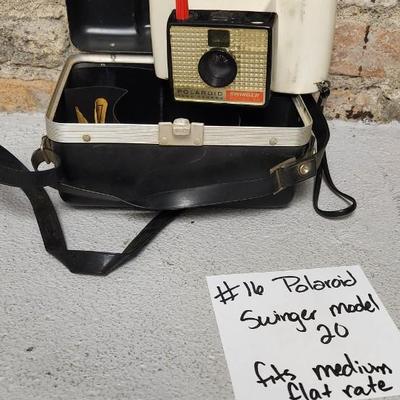 POLAROID
SWINGER
#16 Polaroid
Swinger model
20
fits medium
flat rate